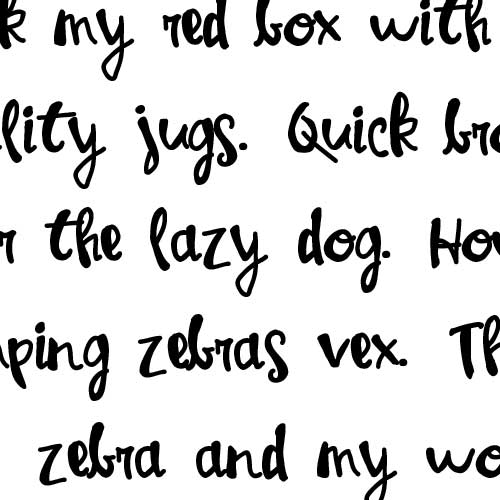 k my red box with
lity jugs. Quick bro
r the lazy dog. How
ping zebras vex. Th
zebra and my wo